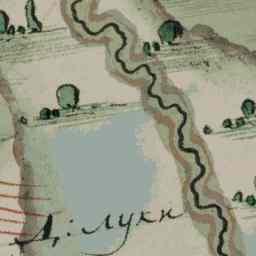 Д: Луки